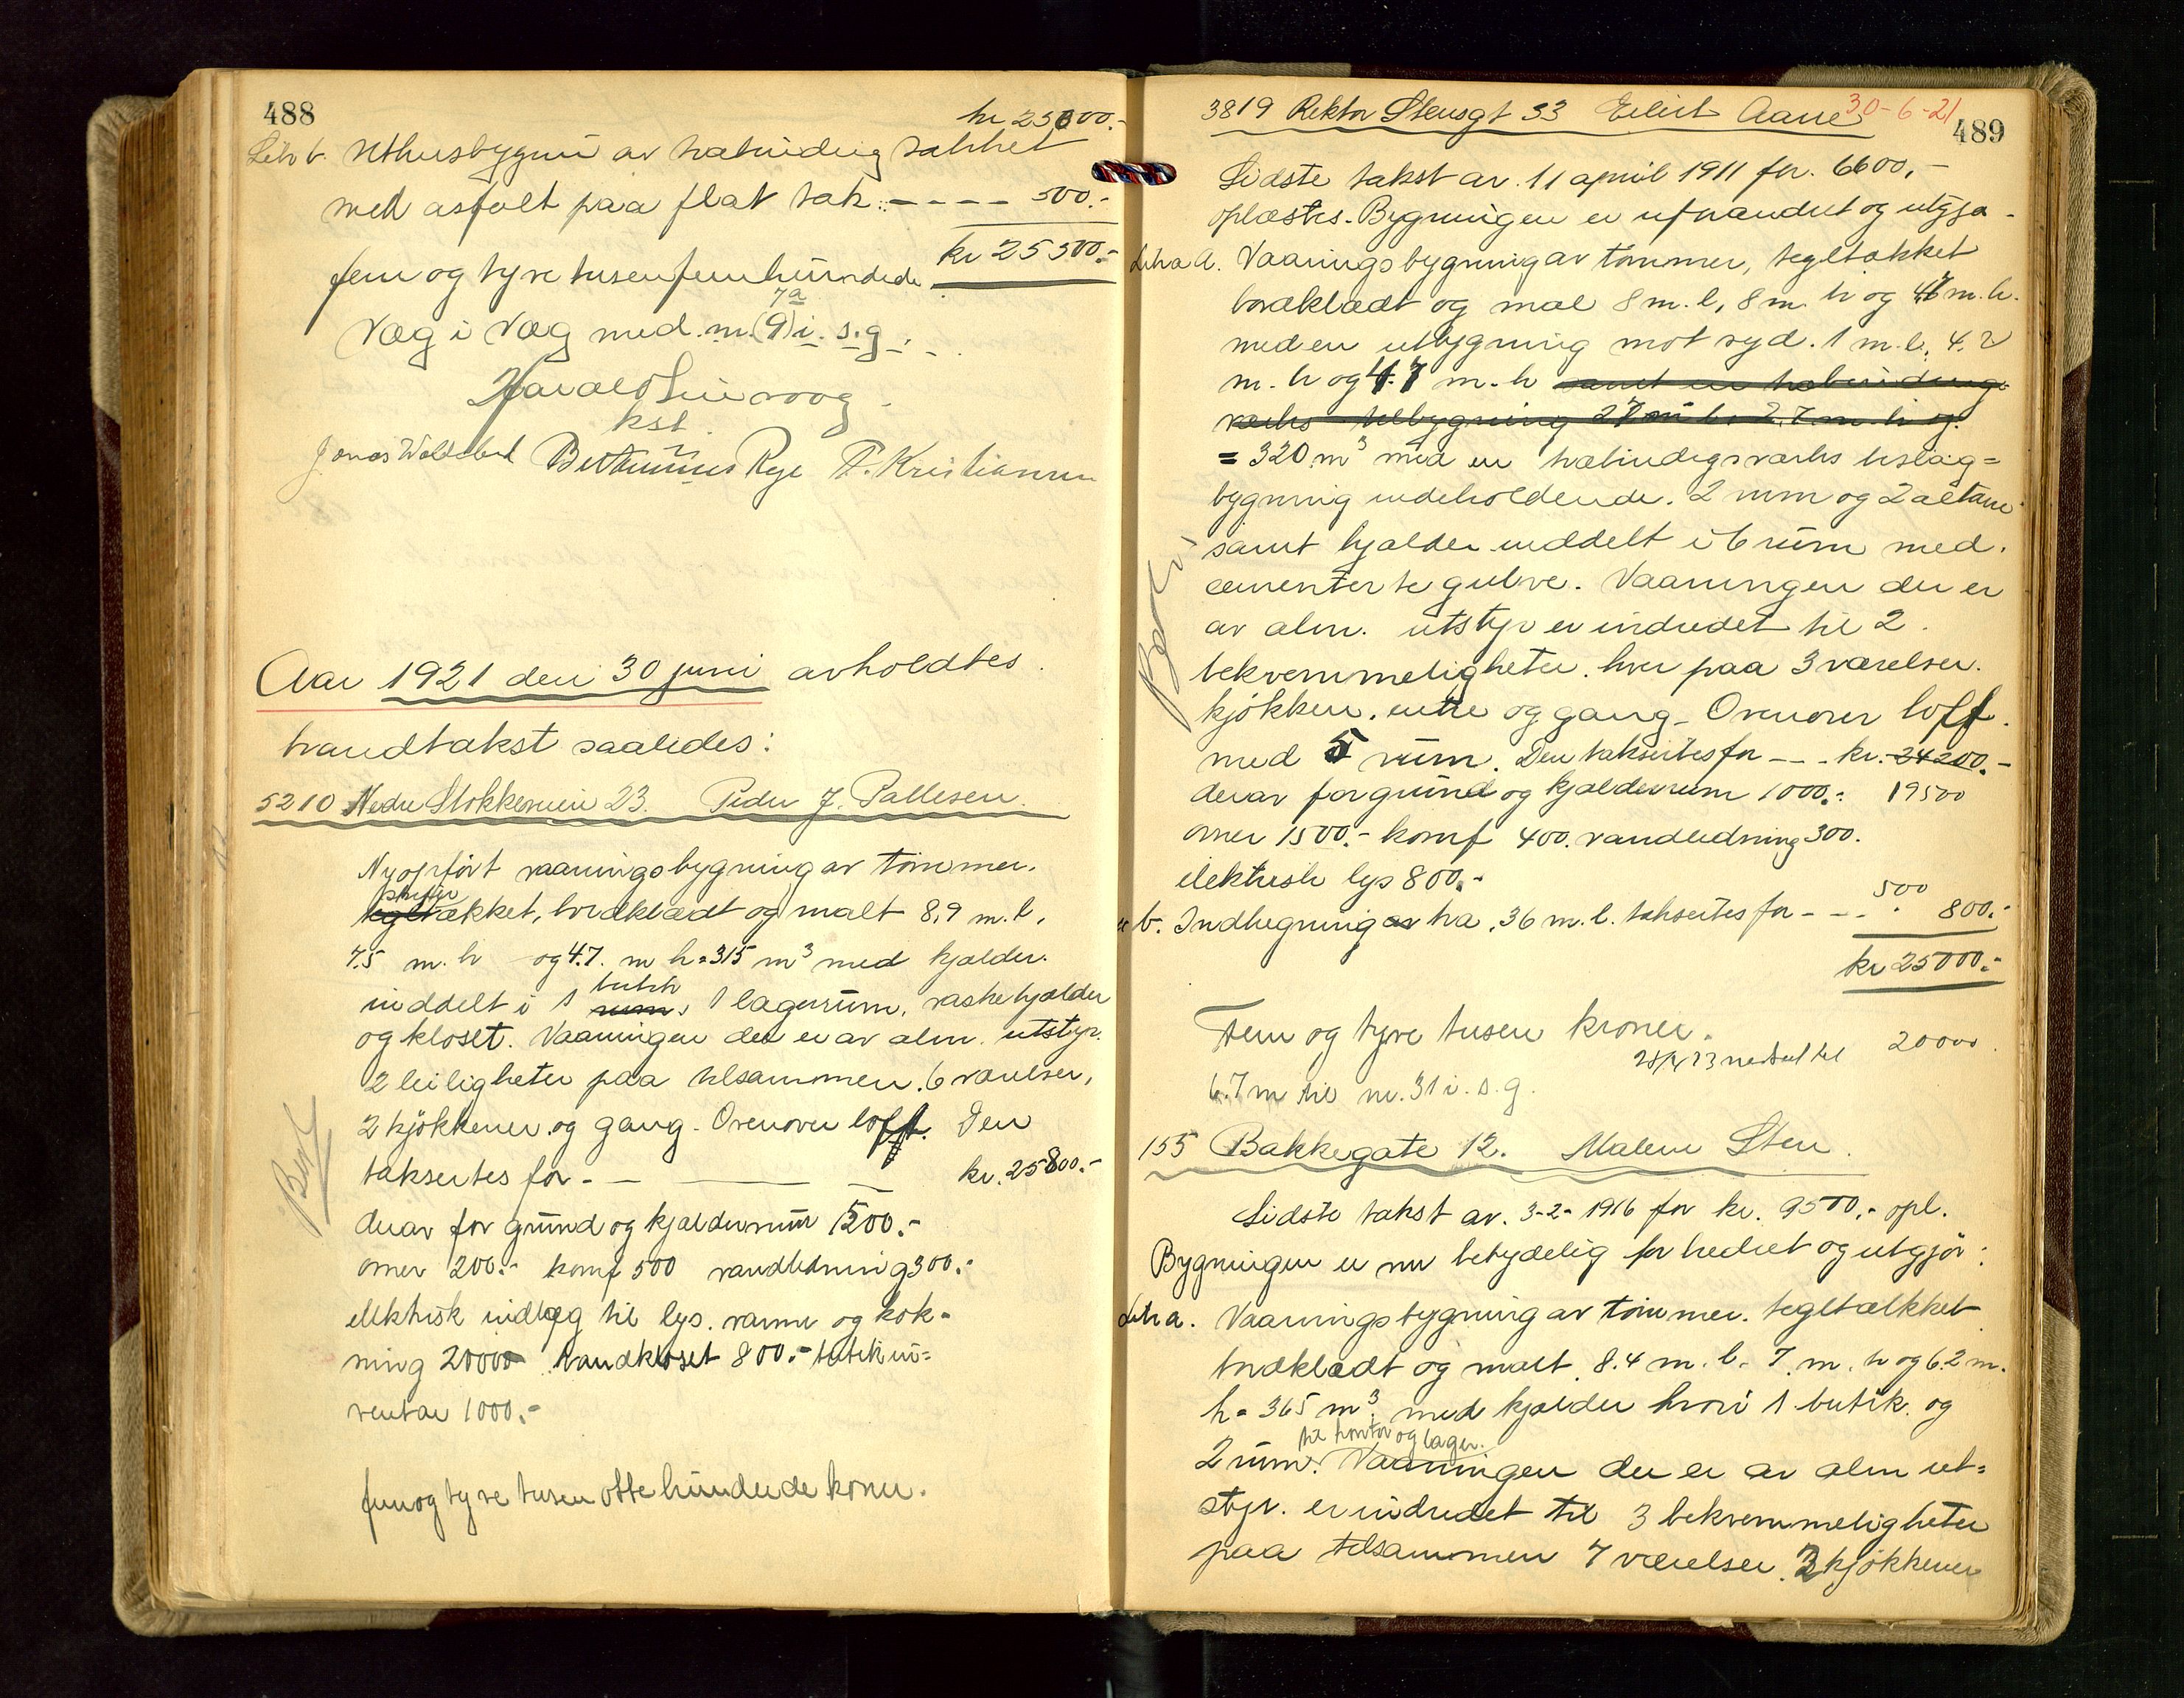 488
kr 25000.-
Litr b. Uthusbygni av træbindig tækket
med asfalt paa flat tak. - - - - 500.-
kr 25500.-
fem og tyve tusenfemhundrede
7a
Væg i Væg med. m. (9) i. s. g.
kst.
Jonas Bertinius Rege P. Kristiansen
Aar 1921 den 30 juni avholdtes
brandtakst saaledes:
5210 Nedre Stokkeveien 23. Peder J. Pallesen.
Nyopført vaaningsbygning av tømmer.
skifer
tegltækket, bordklædt og malt 8,9 m. l,
7.5 m. br og 4.7. m h = 315 m3 med kjælder.
butik
inddelt i 1 rum, 1 lagerrum, vaskekjælder
og kloset. Vaaningen der er av alm. utstyr.
2 leiligheter paa tilsammen 6 værelser,
2 kjøkkener og gang. Ovenover loft. Den
taksertes for - - - kr. 25800.-
derav for grund og kjælderrum 1500.-
ovner 200.- komf 500 vandledning 300.-
elektrisk indlæg til lys. varme og kok-
ning 2000 Vandkloset 800.- butikin-
ventar 1000.-
fem og tyve tusen otte hundrede kroner.
489
3819 Rektor Stensgt 33 Eilert Aane 30-6-21
Sidste takst av. 11 april 1911 for. 6600,-
oplæstes. Bygningen er uforandret og utgjø-
Litra a. Vaaningsbygning av tømmer, tegltækket
bordklædt og mal 8 m. l, 8 m. br og 4.7 m. h.
med en utbygning mot syd. 1 m. l, 4.2
m. br og 4.7 m. h samt en træbindings
verks tilbygning 2.7 m l. 2.7 m. br og
= 320 m3 med en træbindigsverks bislag-
bygning indeholdende. 2 rum og 2 altane
samt kjælder inddelt i 6 rum med.
cementerte gulve. Vaaningen der er
av alm. utstyr er indredet til 2
bekvemmeligheter. hver paa 3 værelser.
kjøkken. entre og gang. Ovenover loft.
med 5 rum. Den taksertes for - - - kr. 24200.-
derav for grund og kjælderrum 1000.- 19500
ovner 1500.- komf 400. vandledning 300.
elektrisk lys 800.-
500
" b. Indhegning av træ. 36 m. l. taksertes for - - - 800.-
kr 25000.-
Fem og tyve tusen kroner.
nedsat til 20000.
6.7 m til nr. 31 i. s. g.
155 Bakkegate 12. Malene Sten.
Sidste takst av. 3-2-1916 for kr. 9500.- opl.
Bygningen er nu betydelig forbedret og utgjør:
Litr a. Vaaningsbygning av tømmer. tegltækket
bordklædt og malt. 8.4 m. l. 7 m. br og 6.2 m.
h = 365 m3. med kjælder hvori 1 butik og
til kontor og lager.
2 rum. Vaaningen der er av alm ut-
styr. er indredet til 3 bekvemmeligheter
paa tilsammen 7 værelser. 3 kjøkkener